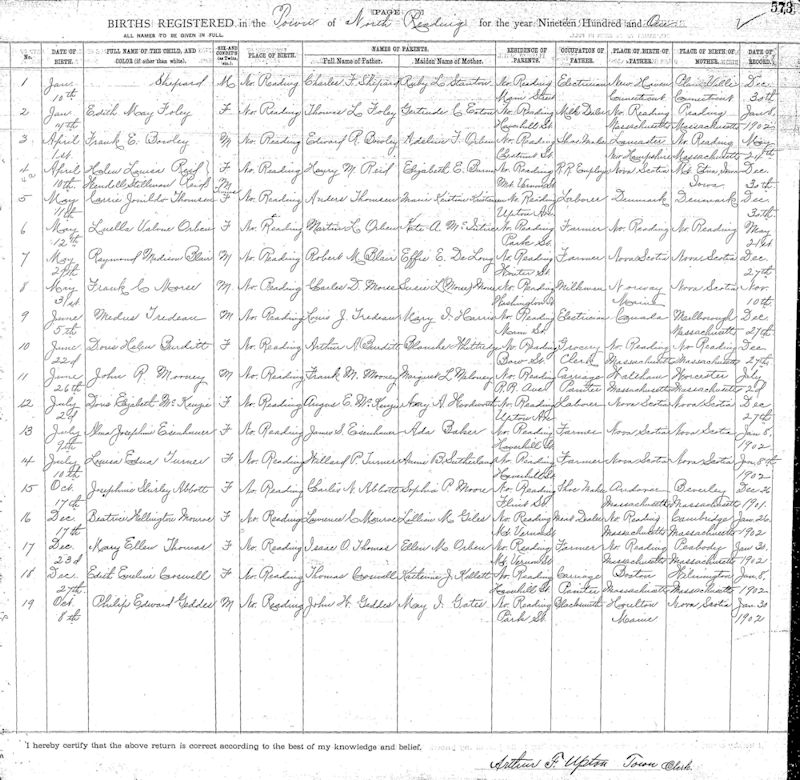 573
PAGE
BIRTHS REGISTERED in the Town of North Reading for the year Nineteen Hundred and One
ALL NAMES TO BE GIVEN IN FULL.
No. DATE OF BIRTH. FULL NAME OF THE CHILD, AND COLOR (if other than white). SEX AND CONDITION (as Twins, etc.) PLACE OF BIRTH. NAMES OF PARENTS. Full Name of Father. Maiden Name of Mother. RESIDENCE OF PARENTS. OCCUPATION OF FATHER. PLACE OF BIRTH OF FATHER. PLACE OF BIRTH OF MOTHER. DATE OF RECORD.
1 Jan. Shepard M No. Reading Charles F. Shepard Ruby L. Stanton No. Reading Electrician New Haven Plainville Dec
10th Main Street Connecticut Connecticut 30th
2 Jan Edith May Foley F No. Reading Thomas L. Foley Gertrude C. Eaton No. Reading Milk Dealer No. Reading Reading Jan 8
Haverhill St. Massachusetts Massachusetts 1902
3 April Frank E. Bowley M No. Reading Edward R. Bowley Adeline F. No. Reading Shoe Maker Lancaster No. Reading May
1st Chestnut St. New Hampshire Massachusetts
4 April Helen Louisa Reid F No. Reading Henry M. Reid Elizabeth E. No. Reading R.R. Nova Scotia Dec
10th Reid M Mt. Vernon St. Iowa 30th
5 May Thomsen F No. Reading Anders Thomsen Marie No. Reading Laborer Denmark Denmark Dec
11th Upton Ave 30th
6 May Luella F No. Reading Martin L. No. Reading Farmer No. Reading No. Reading May
12th Park St. 21st
7 May Raymond Madison Blair M No. Reading Robert M. Blair Effie E. De Long No. Reading Farmer Nova Scotia Nova Scotia Dec
27th Winter St. 27th
8 May Frank C Morse M No. Reading Charles D. Morse Susie L. (Morse) Morse No. Reading Milkman Norway Nova Scotia Nov.
31st Washington St Maine 10th
9 June Medus Tredeau M No. Reading Louis J. Tredeau Mary I. Harris No. Reading Electrician Canada Marlborough Dec
5th Main St. Massachusetts 27th
10 June Doris Helen Burditt F No. Reading Arthur A. Burditt Blanche No. Reading Grocery No. Reading No. Reading Dec
22d Bow St. Clerk Massachusetts Massachusetts 27th
11 June John R. Mooney M No. Reading Frank M. Mooney Margaret L. Maloney No. Reading Carriage Waltham Worcester July
26th R.R. Ave Painter Massachusetts Massachusetts 2d
12 July Doris Elizabeth McKenzie F No. Reading Angus E. McKenzie Mary A. No. Reading Laborer Nova Scotia Nova Scotia Dec
2d Upton Ave 27th
13 July Josephine Eisenhauer F No. Reading James S. Eisenhauer Ada Baker No. Reading Farmer Nova Scotia Nova Scotia Jan 8,
9th Haverhill St. 1902
14 July Louisa Edna Turner F No. Reading Willard P. Turner Annie B. Sutherland No. Reading Farmer Nova Scotia Nova Scotia Jan. 8th
10th Haverhill St. 1902
15 Oct. Josephine Shirley Abbott F No. Reading Charles N. Abbott Sophia P. Moore No. Reading Shoe Maker Andover Beverley Dec 26
17th Flint St. Massachusetts Massachusetts 1901.
16 Dec. Beatrice Wellington Monroe F No. Reading Lawrence S. Monroe Lillian M. Giles No. Reading Meat Dealer No. Reading Cambridge Jan. 26.
17th Mt. Vernon St Massachusetts Massachusetts 1902
17 Dec. Mary Ellen Thomas F No. Reading Isaac O. Thomas Ellen M. No. Reading Farmer No. Reading Peabody Jan 21.
23d Mt. Vernon St Massachusetts Massachusetts 1902
18 Dec. Edith Eveline Coswell F No. Reading Thomas Coswell Katherine J. Kellett No. Reading Carriage Boston Wilmington Jan 8,
27th Haverhill St. Painter Massachusetts Massachusetts 1902
19 Oct. Philip Edward Geddes M No. Reading John W. Geddes May I. Gates No. Reading Blacksmith Houlton Nova Scotia Jan 20
8th Park St. Maine 1902
I hereby certify that the above return is correct according to the best of my knowledge and belief.
Arthur F. Upton Town Clerk.